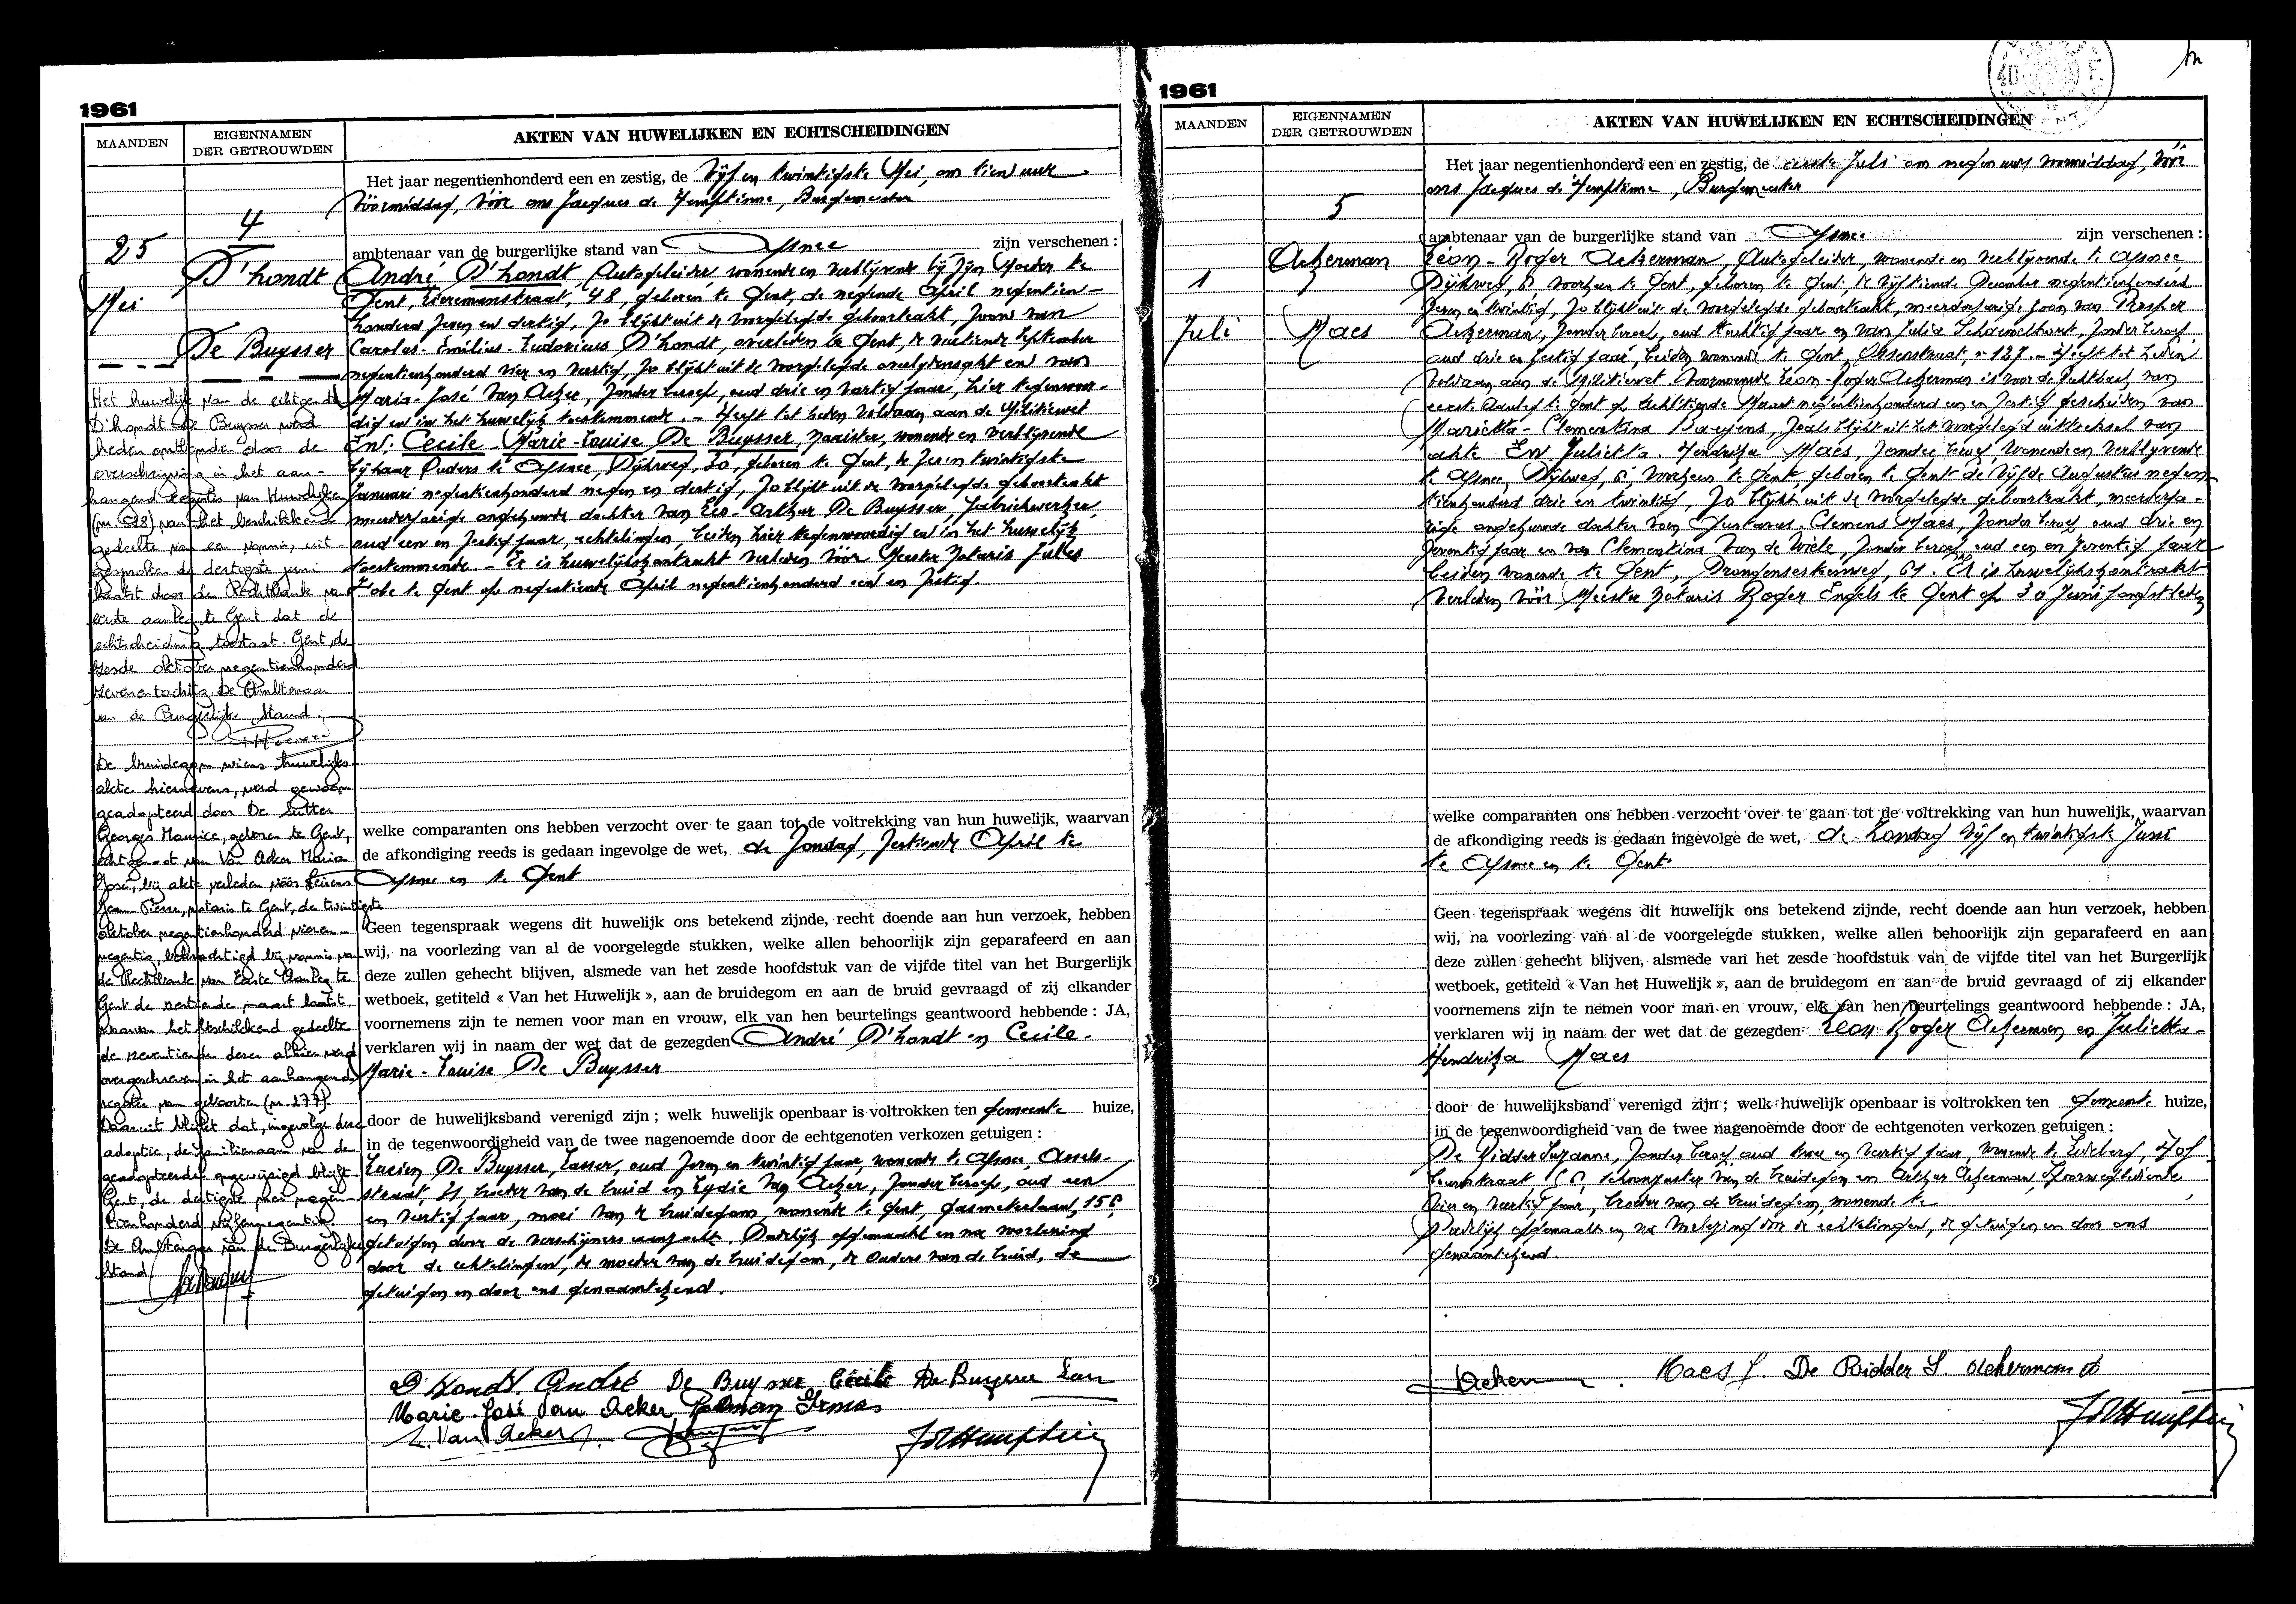 1961
MAANDEN
EIGENNAMEN
DER GETROUWDEN
AKTEN VAN HUWELIJKEN EN ECHTSCHEIDINGEN
4
25
Mei
D'hondt
De Buysser
Het jaar negentienhonderd een en zestig, de Vijf en twintigste Mei, om tien uur
Vóórmiddag, vóór ons Jacques de Hemptinne, Burgemeester
ambtenaar van de burgerlijke stand van Afsnee zijn verschenen :
André D'hondt, Autogeleider, wonende en verblijvende bij zijn Moeder te
Gent, 48, geboren te Gent, de negende April negentien-
honderd zeven en dertig, zo blijkt uit de voorgelegde geboorteakt, zoon van
Carolus-Emilius-Ludovicus D'hondt, overleden te Gent, de veertiende September
negentienhonderd vier en veertig, zo blijkt uit de voorgelegde overlijdensakt en van
Maria-José Van Acker, zonder beroep, oud drie en veertig jaar, hier tegenwoor-
dig en in het huwelijk toestemmende. - Heeft tot heden voldaan aan de Militiewet
En: Cecile Marie-Louise De Buysser, naaister, wonende en verblijvende
bij haar Ouders te Afsnee, Dijkweg, 20, geboren te Gent, de zes en twintigste
Januari negentienhonderd negen en dertig, zo blijkt uit de voorgelegde geboorteakt
meerderjarige ongehuwde dochter van Leo-Arthur De Buysser, fabriekwerker,
oud een en zestig jaar, echtelingen, beiden hier tegenwoordig en in het huwelijk
toestemmende. - Er is huwelijkskontrakt verleden vóór Meester Notaris Jules
te Gent op negentiende April negentienhonderd een en zestig.
Het huwelijk van de echtgen.
D'hondt De Buysser werd
heden ontbonden door de
overschrijving in het aan-
hangend register van Huwelijken
van het beschikkend
gedeelte van een vonnis, uit-
gesproken de dertigste juni
laatst door de Rechtbank van
eerste aanleg te Gent dat de
echtscheiding toestaat. Gent, de
zesde oktober negentienhonderd
zevenentachtig. De Ambtenaar
van de Burgerlijke Stand.
De bruidegom wiens huwelijks-
akte hiernevens, werd gewoon
geadopteerd door De Sutter
Georges Maurice, geboren te Gent,
echtgenoot van Van Acker Maria
José, bij akte verleden vóór
Jean-Pierre, notaris te Gent, de twintigste
oktober negentienhonderd vieren-
negentig, bekrachtigd bij vonnis van
de Rechtbank van Eerste Aanleg te
Gent de zestiende maart laatst.
waarvan het beschikkend gedeelte
de zeventiende dezer alhier werd
overgeschreven in het aanhangend
register van geboorten (nr 277).
Daaruit blijkt dat, ingevolge deze
adoptie, de familienaam van de
geadopteerde ongewijzigd blijft.
Gent, de dertigste mei negen-
tienhonderd vijfennegentig.
De Ambtenaar van de Burgerlijke
Stand
welke comparanten ons hebben verzocht over te gaan tot de voltrekking van hun huwelijk, waarvan
de afkondiging reeds is gedaan ingevolge de wet, de Zondag, zestiende April te
Afsnee en te Gent
Geen tegenspraak wegens dit huwelijk ons betekend zijnde, recht doende aan hun verzoek, hebben
wij, na voorlezing van al de voorgelegde stukken, welke allen behoorlijk zijn geparafeerd en aan
deze zullen gehecht blijven, alsmede van het zesde hoofdstuk van de vijfde titel van het Burgerlijk
wetboek, getiteld « Van het Huwelijk », aan de bruidegom en aan de bruid gevraagd of zij elkander
voornemens zijn te nemen voor man en vrouw, elk van hen beurtelings geantwoord hebbende : JA,
verklaren wij in naam der wet dat de gezegden André D'hondt en Cecile-
Marie-Louise De Buysser
door de huwelijksband verenigd zijn ; welk huwelijk openbaar is voltrokken ten gemeente huize,
in de tegenwoordigheid van de twee nagenoemde door de echtgenoten verkozen getuigen :
Lucien De Buysser, Lasser, oud zeven en twintig jaar, wonende te Afsnee,
straat, 21 broeder van de bruid en Lydie Van Acker, zonder beroep, oud een
en veertig jaar, moei van de bruidegom, wonende te Gent, Gasmeterlaan,
getuigen door de verschijners aangezocht. Dadelijk opgemaakt en na voorlezing
door de echtelingen, de moeder van de bruidegom, de ouders van de bruid, de
getuigen en door ons genaamtekend.
D'Hondt André De Buysser Cécile De Buysser Leo
Marie-José Van Acker Irma
L. Van Acker
1961
MAANDEN
EIGENNAMEN
DER GETROUWDEN
AKTEN VAN HUWELIJKEN EN ECHTSCHEIDINGEN
5
1
Juli
Ackerman
Maes
Het jaar negentienhonderd een en zestig, de eerste Juli om negen uur voormiddag, vóór
ons Jacques de Hemptinne, Burgemeester
ambtenaar van de burgerlijke stand van Afsnee zijn verschenen :
Léon-Roger Ackerman, Autogeleider, wonende en verblijvende te Afsnee
Dijkweg, 6 voorheen te Gent, geboren te Gent de vijftiende December negentienhonderd
zeven en twintig, zo blijkt uit de voorgelegde geboorteakt, meerderjarig, zoon van Prosper
Ackerman, zonder beroep, oud tachtig jaar en van Julia Schamelhout, zonder beroep,
oud drie en zestig jaar, beiden wonende te Gent, 127. - Heeft tot heden
Voldaan aan de Militiewet Voornoemde Léon-Roger Ackerman is voor de Rechtbank van
eerste Aanleg te Gent op achttiende Maart negentienhonderd een en zestig gescheiden van
Marietta-Clementina zoals blijkt uit het voorgelegd uittreksel van
akte En Julietta-Hendrika Maes, zonder beroep, wonende en verblijvende
te Afsnee, Dijkweg, 6, voorheen te Gent geboren te Gent de vijfde Augustus negen-
tienhonderd drie en twintig, zo blijkt uit de voorgelegde geboorteakt, meerderja-
rige ongehuwde dochter van Gustavus-Clemens Maes, zonder beroep oud drie en
zeventig jaar en van Clementina Van de Wiele, zonder beroep, oud een en zeventig jaar
beiden wonende te Gent, Drongensesteenweg, 61. Er is huwelijkskontrakt
verleden vóór Meester Notaris Roger Engels te Gent op 30 Juni jongstleden
welke comparanten ons hebben verzocht over te gaan tot de voltrekking van hun huwelijk, waarvan
de afkondiging reeds is gedaan ingevolge de wet, de Zondag vijf en twintigste Juni
te Afsnee en te Gent
Geen tegenspraak wegens dit huwelijk ons betekend zijnde, recht doende aan hun verzoek, hebben
wij, na voorlezing van al de voorgelegde stukken, welke allen behoorlijk zijn geparafeerd en aan
deze zullen gehecht blijven, alsmede van het zesde hoofdstuk van de vijfde titel van het Burgerlijk
wetboek, getiteld « Van het Huwelijk », aan de bruidegom en aan de bruid gevraagd of zij elkander
voornemens zijn te nemen voor man en vrouw, elk van hen beurtelings geantwoord hebbende : JA,
verklaren wij in naam der wet dat de gezegden Léon Roger Ackerman en Julietta-
Hendrika Maes
door de huwelijksband verenigd zijn ; welk huwelijk openbaar is voltrokken ten gemeente huize,
in de tegenwoordigheid van de twee nagenoemde door de echtgenoten verkozen getuigen :
De Ridder Suzanne, zonder beroep, oud twee en veertig jaar, wonende te Ledeberg, Hof
schoonzuster van de bruidegom en Arthur Ackerman, Spoorwegbediende
vier en veertig jaar, broeder van de bruidegom, wonende te
Dadelijk opgemaakt en na voorlezing door de echtelingen, de getuigen en door ons
genaamtekend.
Maes J. De Ridder S. Ackerman A